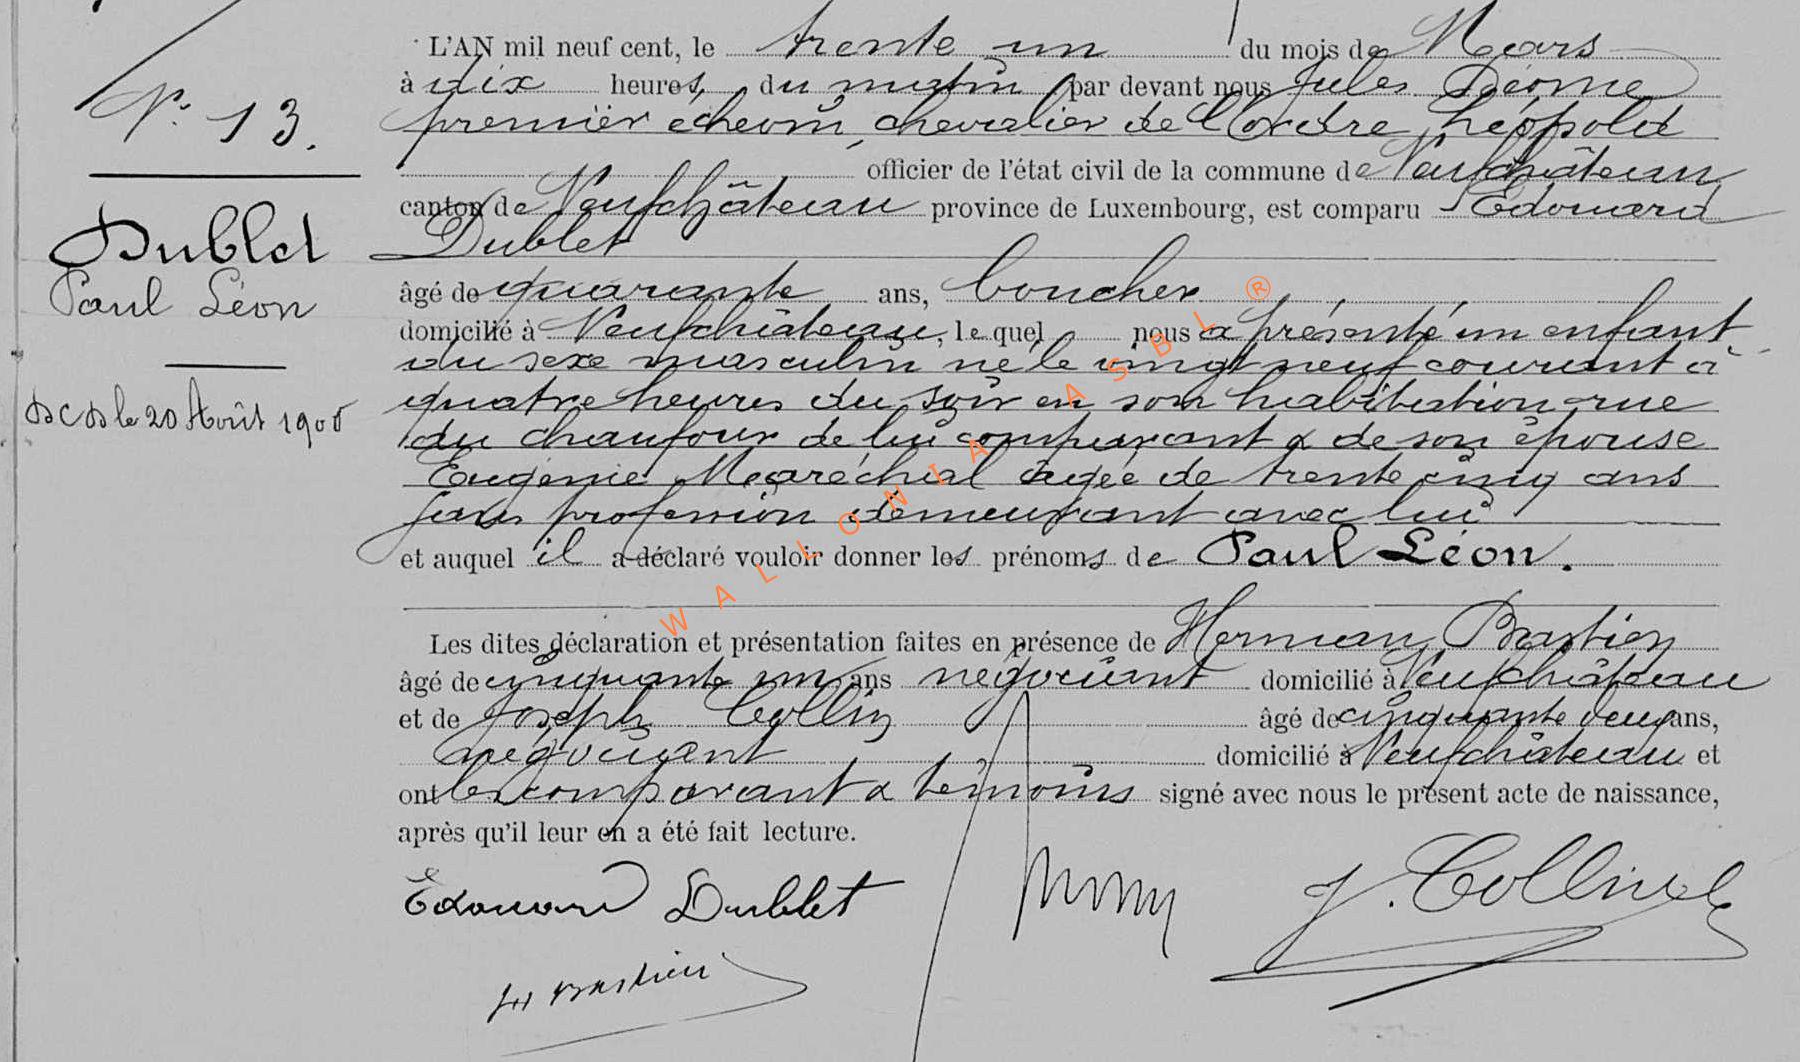 N° 13.
Dublet
Paul Léon
DCD le 20 Août 1900
L'AN mil neuf cent, le trente un du mois de Mars
à dix heures, du matin, par devant nous Jules
premier échevin, chevalier de l'Ordre Léopold
officier de l'état civil de la commune de Neufchâteau
canton de Neufchâteau province de Luxembourg, est comparu Edouard
Dublet
âgé de quarante ans, boucher
domicilié à Neufchâteau, lequel nous a présenté un enfant
du sexe masculin né le vingt neuf courant à
quatre heures du soir en son habitation rue
du chaufour de lui comparant & de son épouse
Eugénie Maréchal âgée de trente cinq ans
sans profession demeurant avec lui
et auquel il a déclaré vouloir donner les prénoms de Paul Léon.
Les dites déclaration et présentation faites en présence de Herman Bastien
âgé de cinquante un ans négociant domicilié à Neufchâteau
et de Joseph Collin âgé de cinquante deux ans,
négociant domicilié à Neufchâteau et
ont les comparant & témoins signé avec nous le présent acte de naissance,
après qu'il leur en a été fait lecture.
Edouard Dublet
J. Collin
H Bastien
WALLONIA ASBL ®